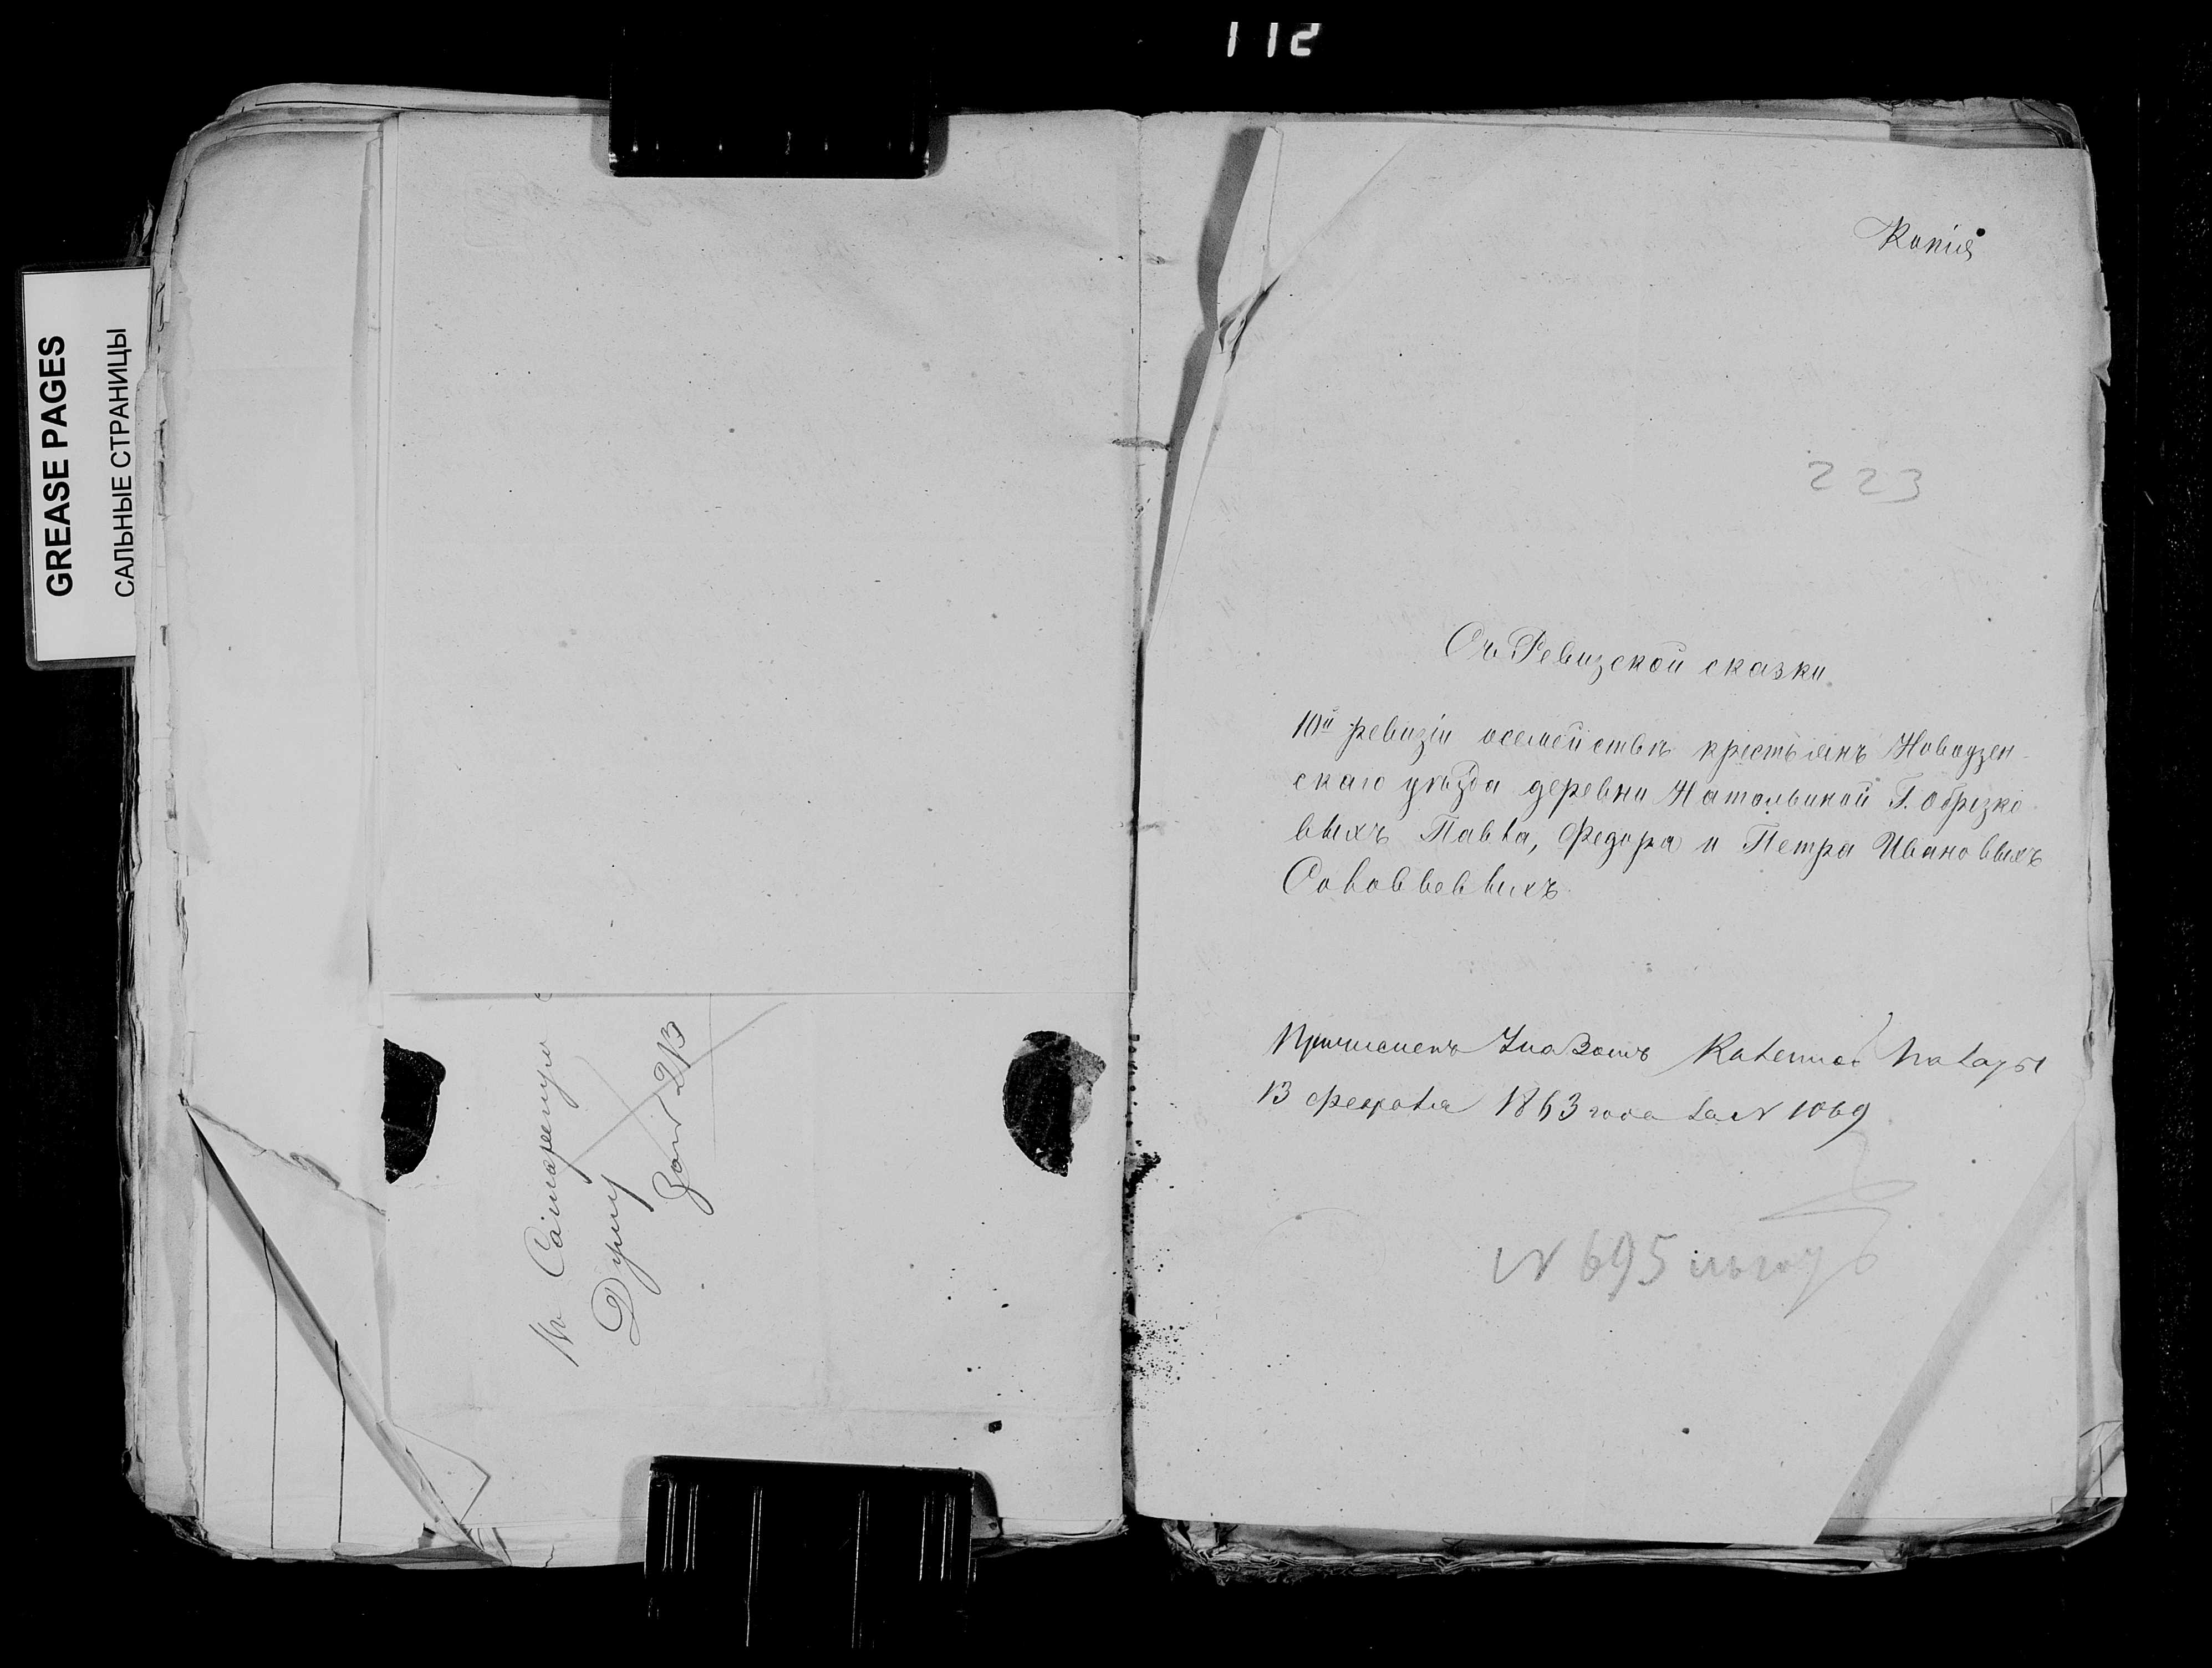 112
GREASE PAGES
САЛЬНЫЕ СТРАНИЦЫ
Въ Самарскую
Думу
Копія
223
Съ Ревизской сказки
10й ревизіи о семействѣ крестьянъ Новоузен-
скаго уѣзда деревни Натальиной Г. Обрезко-
выхъ Павла, Федора и Петра Ивановыхъ
Соловьевыхъ
Причислены Указомъ Казенной Палаты
13 Февраля 1863 года за N 1069
N 695